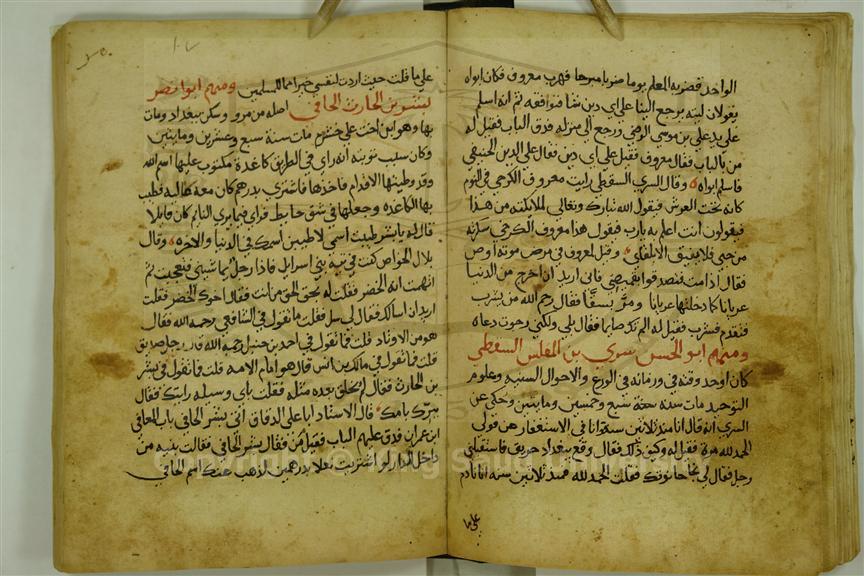 الواحد فضربه المعلم يوما ضربا مبرحا فهرب معروف فكان ابواه
يقولان ليته يرجع الينا علي اي دين شا فنوافقه ثم انه اسلم
علي يد علي بن موسى الرضي ورجع الي منزله فدق الباب فقيل له
من بالباب فقال معروف فقيل علي اي دين فقال علي الدين الحنيفي
فاسلم ابواه وقال السري السقطي رايت معروف الكرخي في النوم
كانه تحت العرش فيقول الله تبارك وتعالي لملائكته من هذا
فيقولون انت اعلم به يارب فيقول هذا معروف الكرخي سكر
من حبي فلا يفيق الا بلقاي وقيل لمعروف في مرض موته اوص
فقال اذا مت فتصدقوا بقميصي فاني اريد ان اخرج من الدنيا
عريانا كما دخلتها عريانا ومر بسقا فقال رحم الله من يشرب
فتقدم فشرب فقيل له الم تك صايما فقال بلي ولكني رجوت دعاه
ومنهم ابو الحسن سري بن المغلس السقطي
كان اوحد وقته في زمانه في الورع والاحوال السنيه وعلوم
التوحيد مات سنة سبع وخمسين ومايتين وحكي عن
السري انه قال انا منذ ثلاثين سنة انا في الاستغفار من قولي
الحمد لله مرة فقيل له وكيف ذلك فقال وقع ببغداد حريق فاستقبلني
رجل فقال لي نجا حانوتك فقلت الحمد لله فمنذ ثلاثين سنة انا نادم
علي ما
علي ما قلت حيث اردت لنفسي خيرا مما للمسلمين ومنهم ابو نصر
بشر بن الحارث الحافي اصله من مرو وسكن ببغداد ومات
بها وهو ابن اخت علي خشرم مات سنة سبع وعشرين ومايتين
وكان سبب توبته انه راي في الطريق كاغدة مكتوب عليها اسم الله
وقد وطيتها الاقدام فاخذها فاشتري بدرهم كان معه غاليه فطيب
بها الكاغده وجعلها في شق حايط فراي فيما يري النايم كان قايلا
قال له يا بشر طيبت اسمي لاطيبن اسمك في الدنيا والاخره وقال
بلال الخواص كنت في تيه بني اسرايل فاذا رجل يماشيني فتعجبت ثم
الهمت انه الخضر فقلت له بحق الحق من انت فقال اخوك الخضر فقلت
اريد ان اسالك فقال لي سل فقلت ما تقول في الشافعي رحمه الله فقال
هو من الاوتاد قلت فما تقول في احمد بن حنبل رحمه الله قال رجل صديق
قلت فما تقول في مالك بن انس قال هو امام الامه قلت فما تقول في بشر
بن الحارث فقال لم يخلق بعده مثله فقلت باي وسيله رايتك فقال
ببرك بامك قال الاستاد ابا علي الدقاق اتي بشر الحافي باب المعافي
ابن عمران فدق عليهم الباب فقيل من فقال بشر الحافي فقالت بنيه من
داخل الدار لو اشتريت نعلا بدرهمين لذهب عنك اسم الحافي